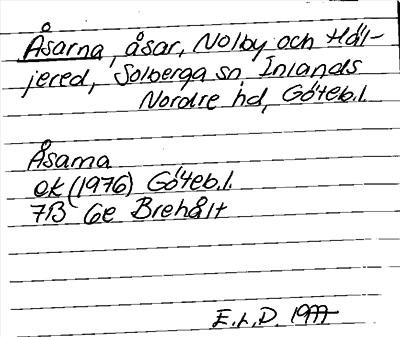 Åsarna, åsar, Nolby och Häl-
jered, Solberga sn, Inlands
Nordre hd, Göteb.l.
Åsarna
ek (1976) Göteb.l.
7B 6e Brehålt
E.L.D. 1977